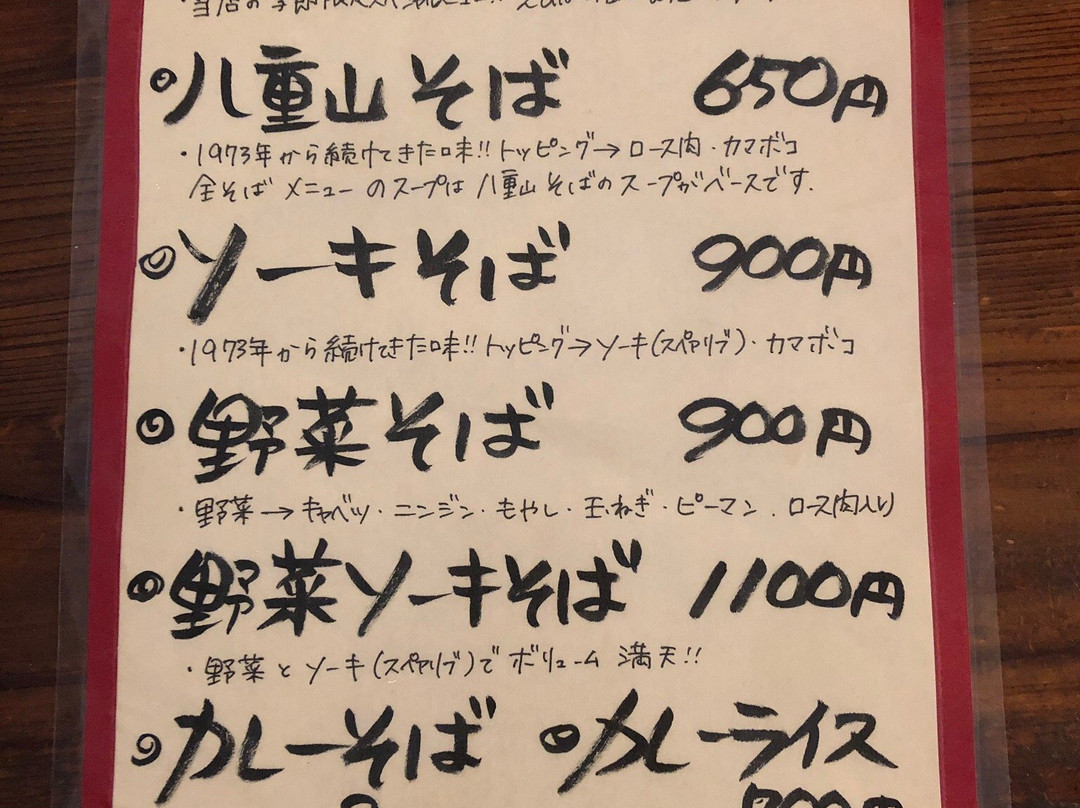 ◎八重山そば 650円
・1973年から続けてきた味!! トッピング→ロース肉・カマボコ
全そばメニューのスープは八重山そばのスープがベースです.
◎ソーキそば 900円
・1973年から続けてきた味!! トッピング→ソーキ(スペアリブ)・カマボコ
◎野菜そば 900円
・野菜→キャベツ・ニンジン・もやし・玉ねぎ・ピーマン. ロース肉入り
◎野菜ソーキそば 1100円
・野菜とソーキ(スペアリブ)でボリューム満天!!
◎カレーそば ◎カレーライス